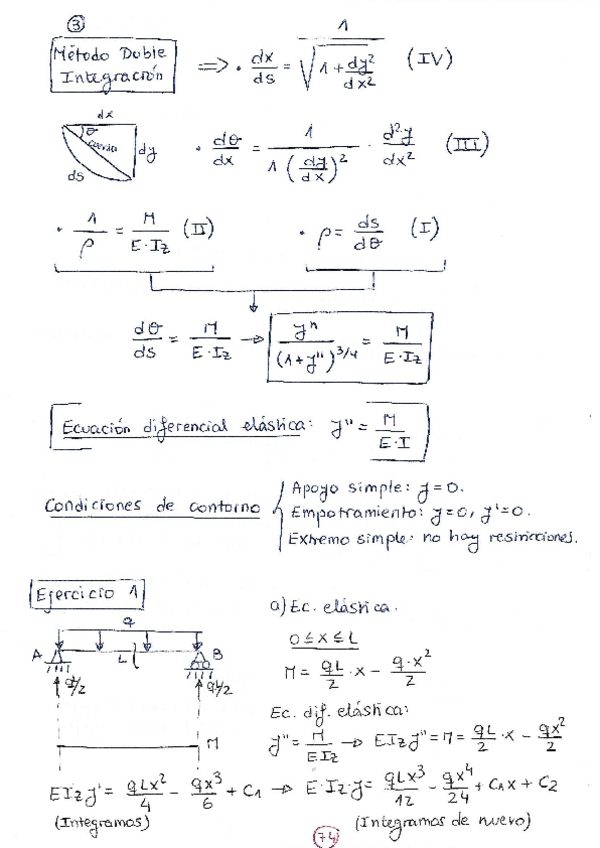 ③
Método Doble Integración => · dx/ds = 1/√(1 + dy²/dx²) (IV)
dx
θ
cuerda
dy
ds
· dθ/dx = 1/(1 (dy/dx)²) · d²y/dx² (III)
· 1/ρ = M/(E·Iz) (II) · ρ = ds/dθ (I)
dθ/ds = M/(E·Iz) → y"/(1+y'')^3/4 = M/(E·Iz)
Ecuación diferencial elástica: y" = M/(E·I)
Condiciones de contorno { Apoyo simple: y=0.
Empotramiento: y=0, y'=0.
Extremo simple: no hay restricciones.
Ejercicio 1
q
A L B
qL/2 qL/2
M
a) Ec. elástica.
0 ≤ x ≤ L
M = qL/2 · x - q·x²/2
Ec. dif. elástica:
y" = M/(E·Iz) → EIz y" = M = qL/2 · x - qx²/2
EIz y' = qLx²/4 - qx³/6 + C1 → E·Iz·y = qLx³/12 - qx⁴/24 + C1x + C2
(Integramos) (Integramos de nuevo)
74